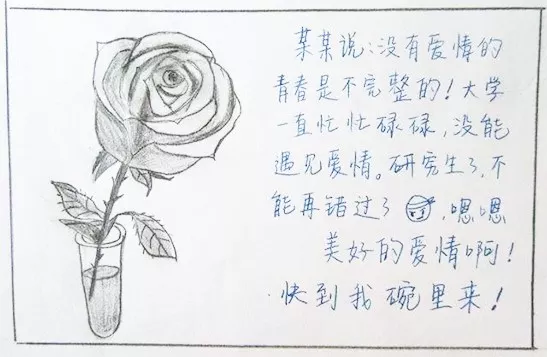 某某说:没有爱情的
青春是不完整的!大学
一直忙忙碌碌,没能
遇见爱情。研究生了,不
能再错过了,嗯嗯
美好的爱情啊!
快到我碗里来!